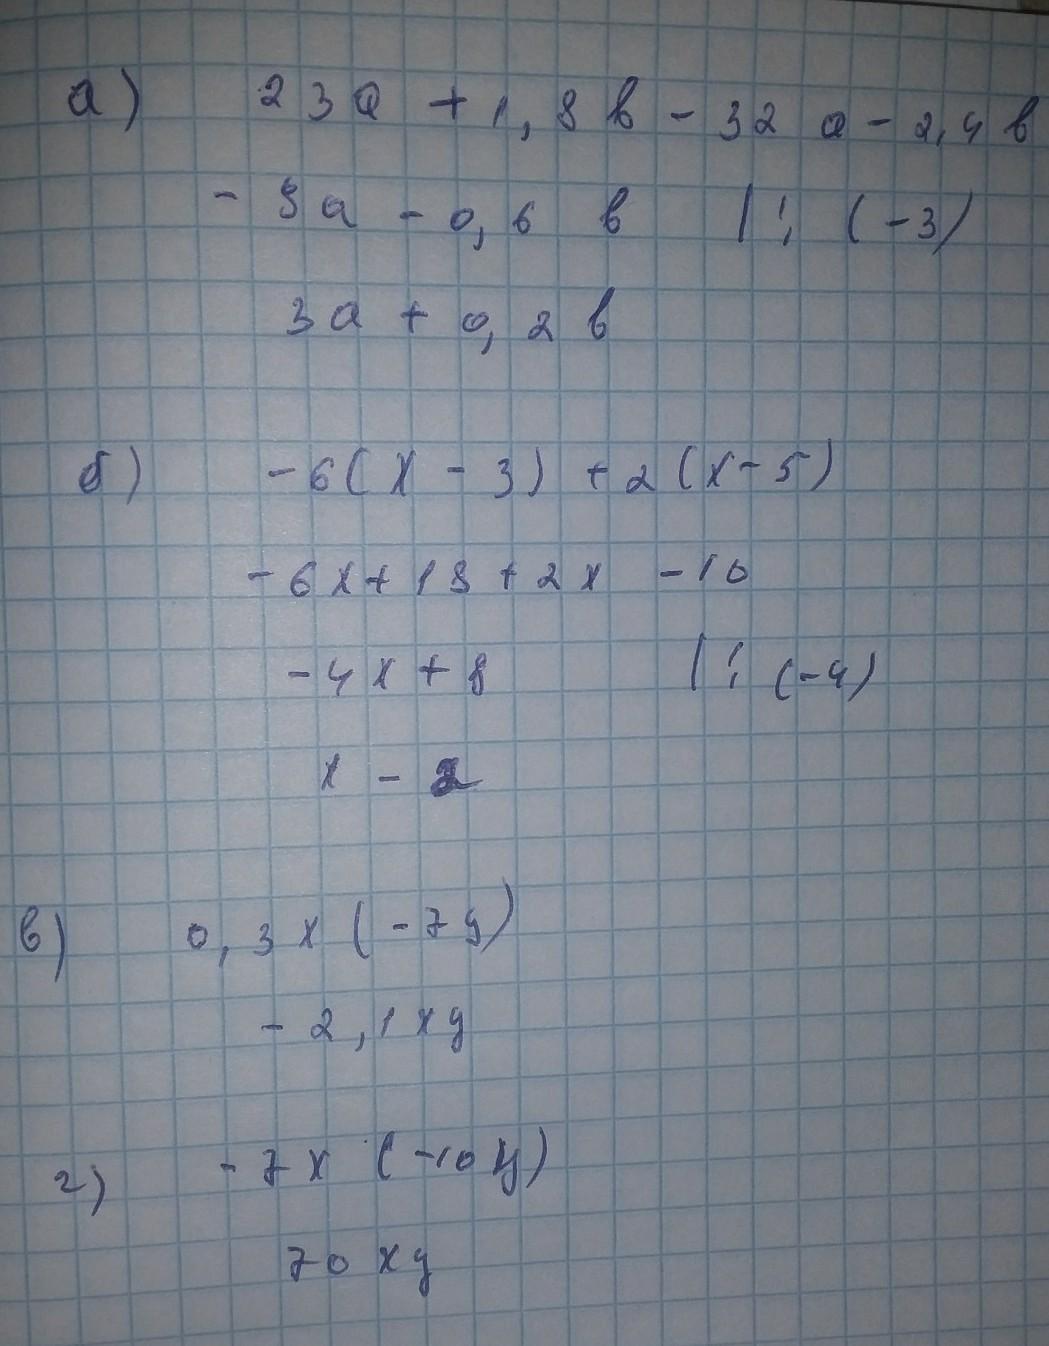 а) 23a + 1,8b - 32a - 2,4b
- 9a - 0,6 b |: (-3)
3a + 0,2b
б) -6(x - 3) + 2(x-5)
-6x + 18 + 2x -10
-4x + 8 |: (-4)
x - 2
в) 0,3x (-7y)
- 2,1xy
г) -7x (-10y)
70xy